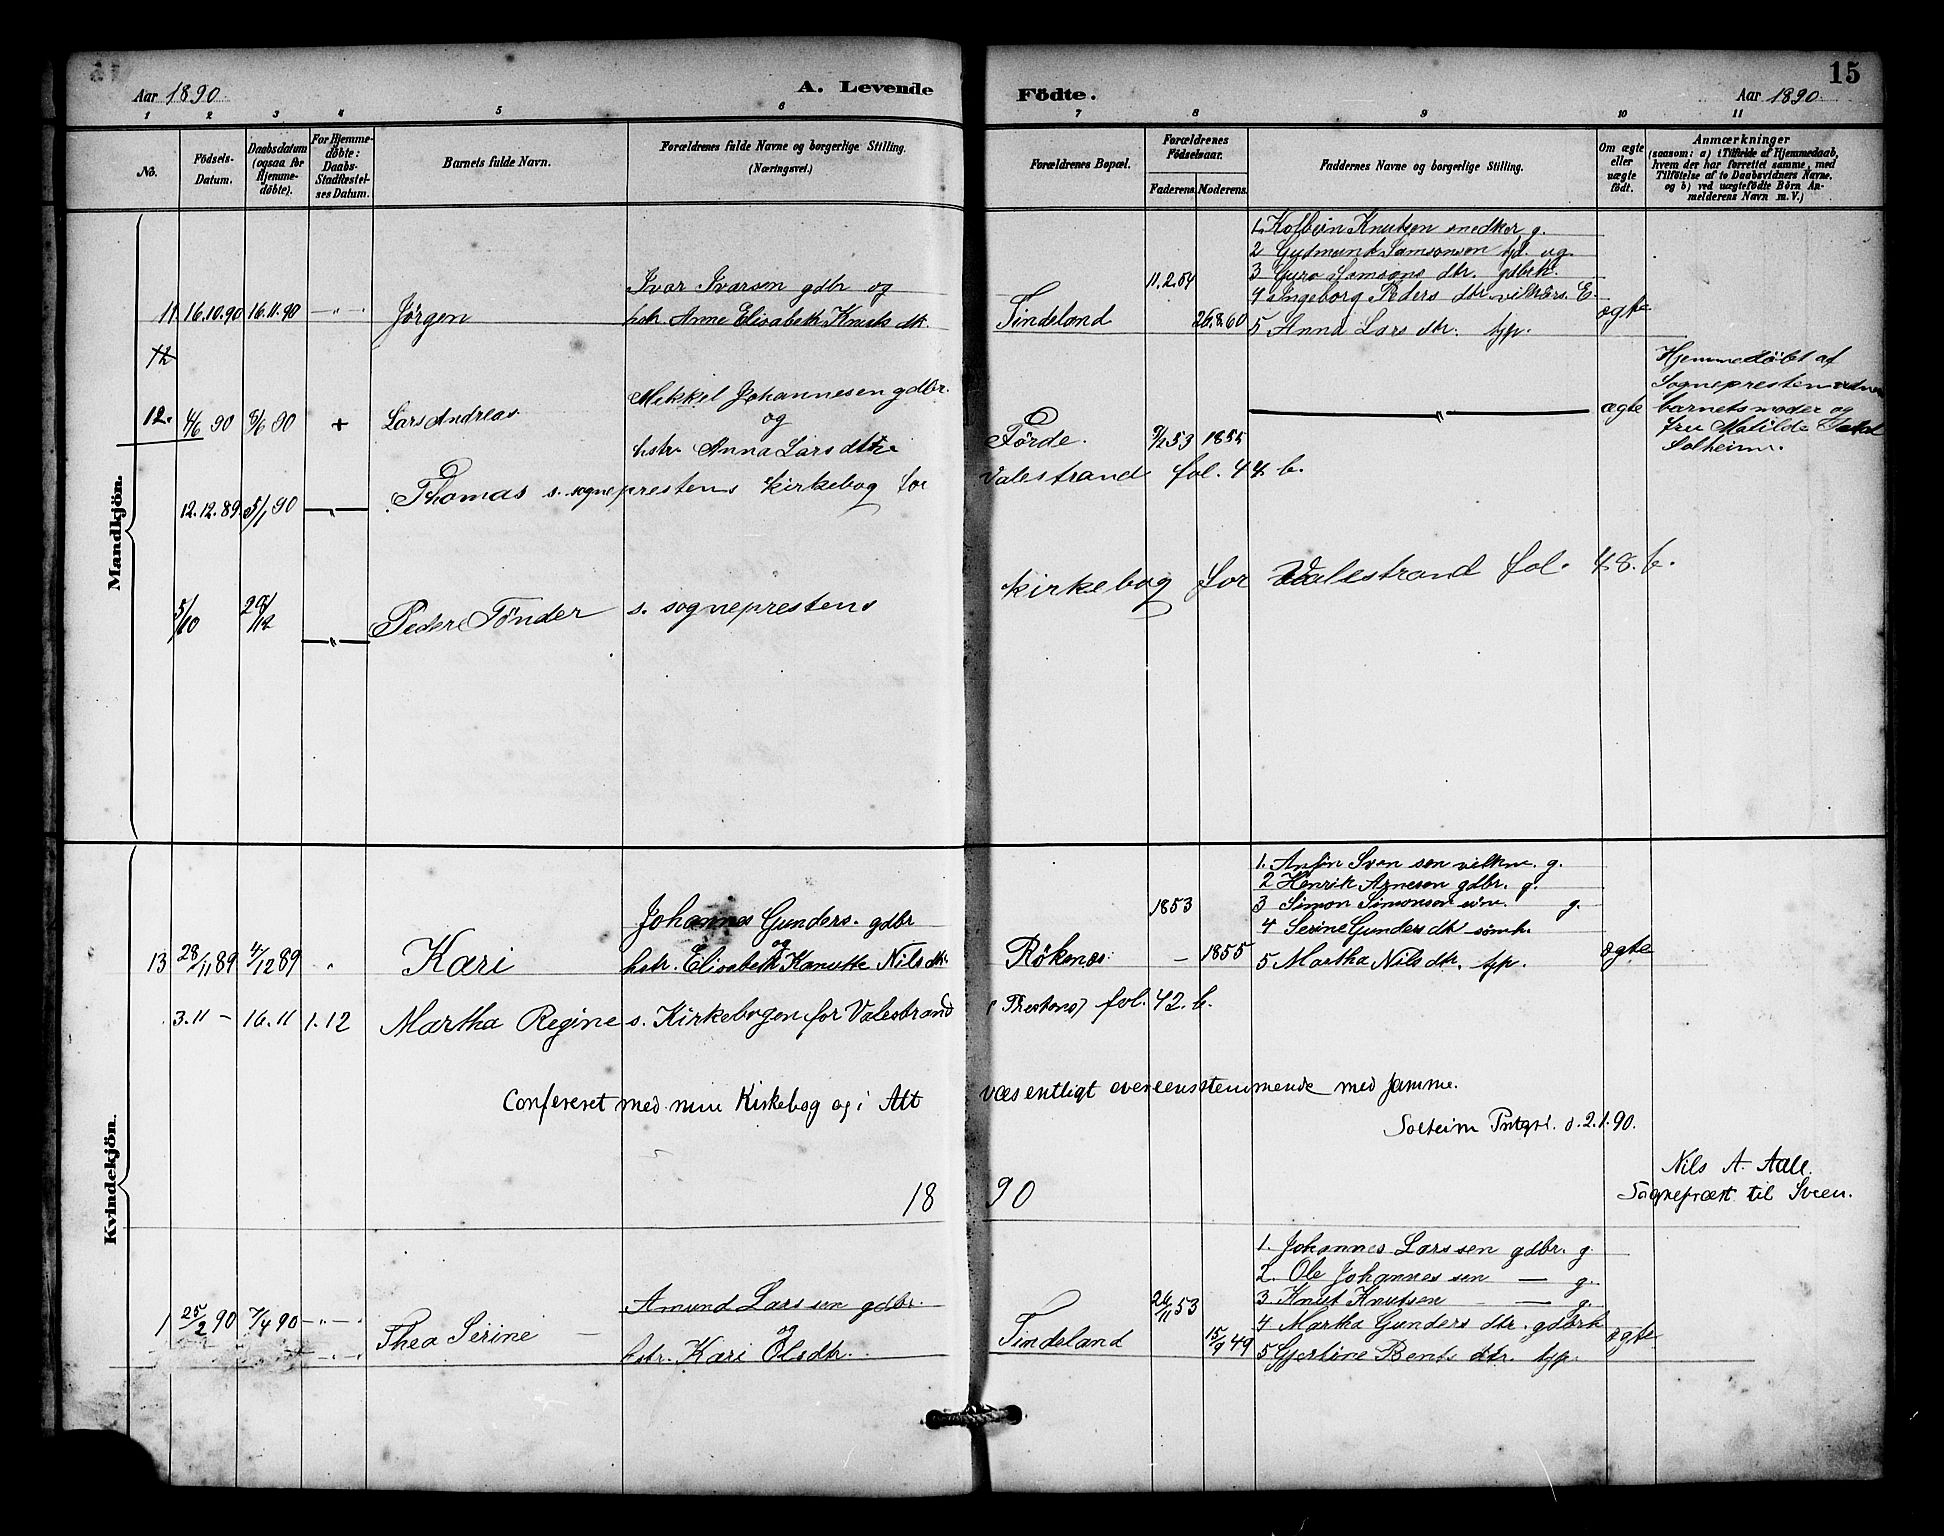 15
Aar 1890
A. Levende
Födte.
Aar 1890
1 2 3 4 5 6 7 8 9 10 11
No.
Födsels-
Datum.
Daabsdatum
(ogsaa for
Hjemme-
döbte).
For Hjemme-
döbte:
Daabs-
Stadfæstel-
ses Datum.
Barnets fulde Navn.
Forældrenes fulde Navne og borgerlige Stilling.
(Næringsvei.)
Forældrenes Bopæl.
Forældrenes
Födselsaar.
Faderens. Moderens.
Faddernes Navne og borgerlige Stilling.
Om ægte
eller
uægte
födt.
Anmærkninger
(saasom: a) i Tilfælde af Hjemmedaab,
hvem der har forrettet samme, med
Tilföielse af to Daabsvidners Navne,
og b) ved uægtefödte Börn An-
melderens Navn m. V.)
Mandkjön.
1. Kolbein Knutsen snedker g.
2 Gudmund Samsonsen ug.
3 Guro Samsons dtr. gdbrk.
4 Ingeborg Peders dtr vilkårs. E
5 Anna Lars dtr. typ.
Ivar Ivarsen gdbr og
hstr. Anne Elisabeth Knuts dtr.
11 16.10.90 16.11.90 — " — Jörgen
Tindeland 11.2.54 26.8.60 ægte
12
12. 4/6 90 8/6 90 + Lars Andreas
Mikkel Johannesen gdbr.
og
hstr. Anna Larsdtr
Förde. 9/2 53 1855 — " — ægte
Hjemmedöbt af
Sognepresten
barnets moder og
fru Matilde
Solheim.
12.12.89 5/1 90 — " — Thomas s. sogneprestens kirkebog for Valestrand fol. 44 b.
5/10 29/12 — " — Peder Tönder s. sogneprestens kirkebog for Valestrand fol. 48. b.
Kvindekjön.
1. Anfin Svensen vilkm. g.
2 Henrik Arneson gdbr. g.
3 Simon Simonson g.
4 Serine Gunders dtr
5 Martha Nils dtr. typ.
13 28/11 89 4/12 89 " Kari
Johannes Gunders. gdbr
og
hstr. Elisabeth Kanutte Nils dtr.
Röksnes: 1853 — 1855 ægte
3.11 — 16.11 1.12 Martha Regine s. Kirkebogen for Valestrand (Prestens) fol. 42. b.
Confereret med min Kirkebog og i Alt væsentligt overeensstemmende med samme.
d. 2.1.90.
Nils A. Aall.
Sognepræst til Sveen.
1890
1. Johannes Larssen gdbr. g.
2. Ole Johannessen — g.
3 Knut Knutsen — g.
4 Martha Gunders dtr. gdbrk
5 Gjertine Bents dtr. typ.
1 25/2 90 7/4 90 — " — Thea Serine —
Amund Larssen gdbr.
og
hstr. Kari Olsdtr.
Tindeland 26/11 53 15/9 49 ægte